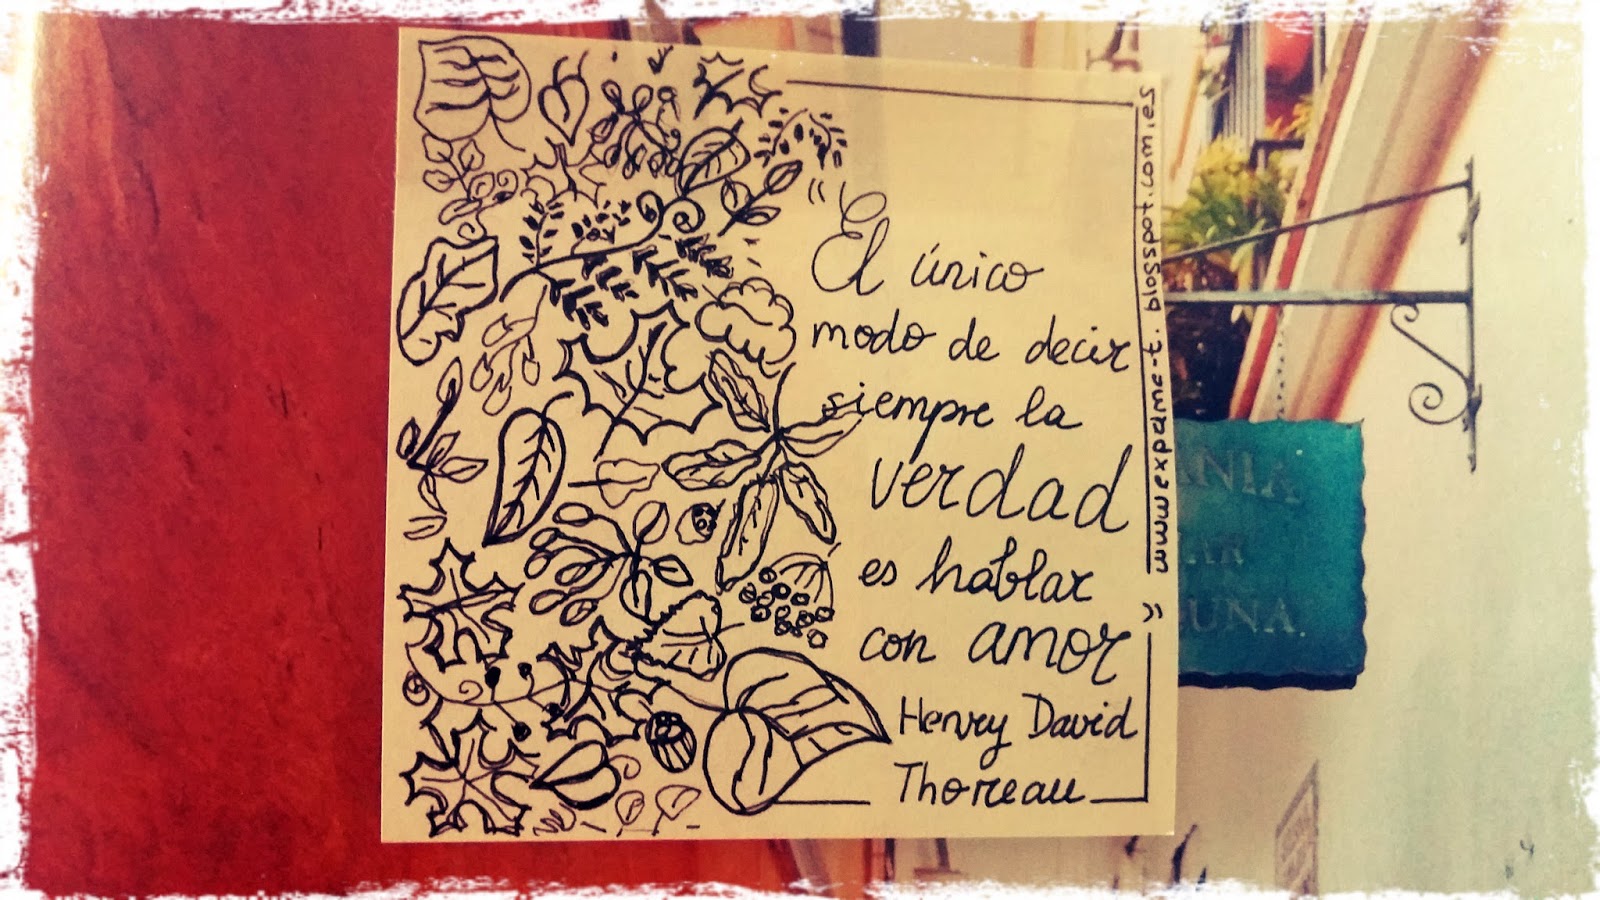 "El único
modo de decir
siempre la
verdad
es hablar
con amor"
Henry David
Thoreau
www.expdme-t.blogspot.com.es
ANIA
AR
UNA.